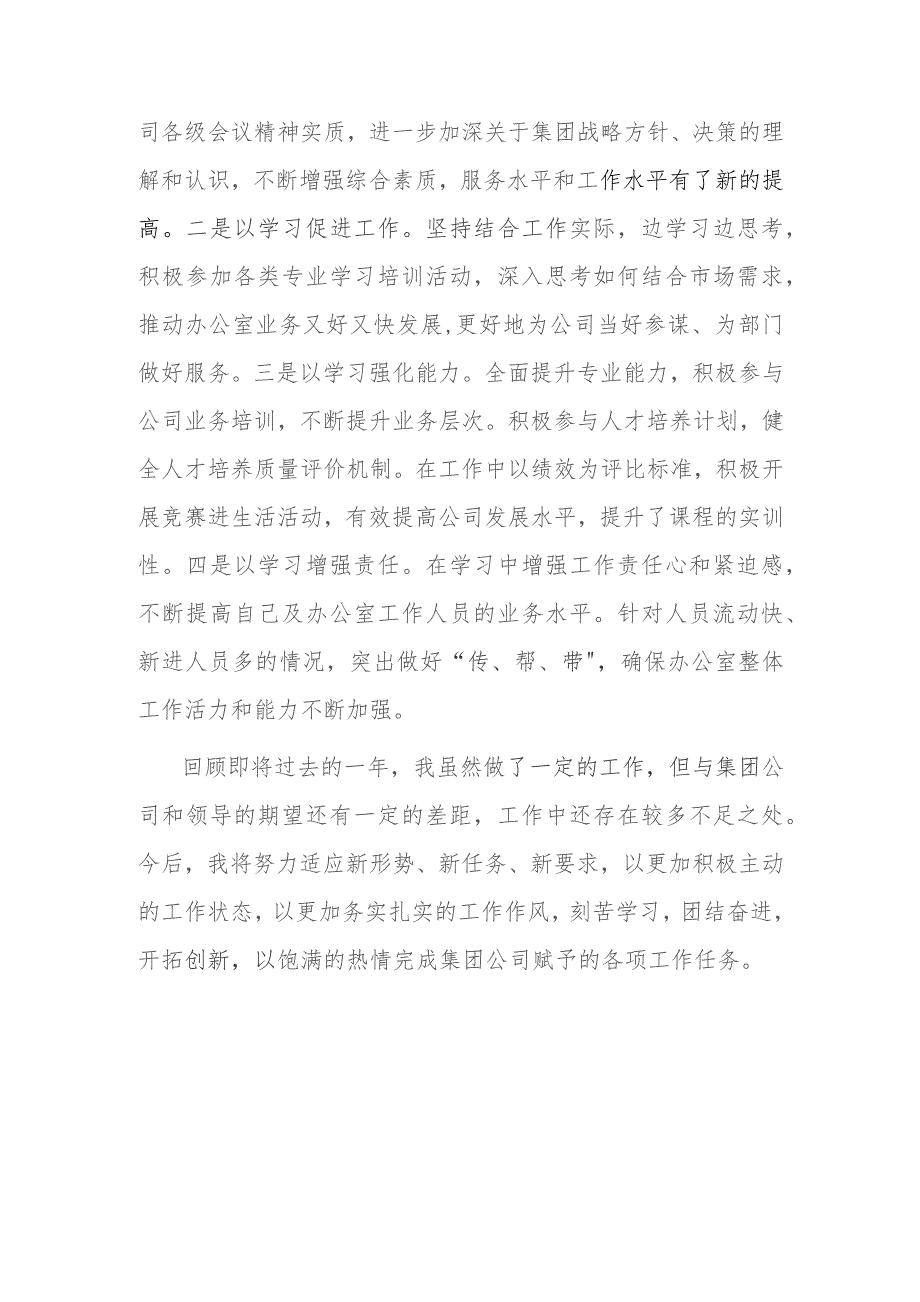 司各级会议精神实质，进一步加深关于集团战略方针、决策的理
解和认识，不断增强综合素质，服务水平和工作水平有了新的提
高。二是以学习促进工作。坚持结合工作实际，边学习边思考，
积极参加各类专业学习培训活动，深入思考如何结合市场需求，
推动办公室业务又好又快发展,更好地为公司当好参谋、为部门
做好服务。三是以学习强化能力。全面提升专业能力，积极参与
公司业务培训，不断提升业务层次。积极参与人才培养计划，健
全人才培养质量评价机制。在工作中以绩效为评比标准，积极开
展竞赛进生活活动，有效提高公司发展水平，提升了课程的实训
性。四是以学习增强责任。在学习中增强工作责任心和紧迫感，
不断提高自己及办公室工作人员的业务水平。针对人员流动快、
新进人员多的情况，突出做好“传、帮、带"，确保办公室整体
工作活力和能力不断加强。
回顾即将过去的一年，我虽然做了一定的工作，但与集团公
司和领导的期望还有一定的差距，工作中还存在较多不足之处。
今后，我将努力适应新形势、新任务、新要求，以更加积极主动
的工作状态，以更加务实扎实的工作作风，刻苦学习，团结奋进，
开拓创新，以饱满的热情完成集团公司赋予的各项工作任务。